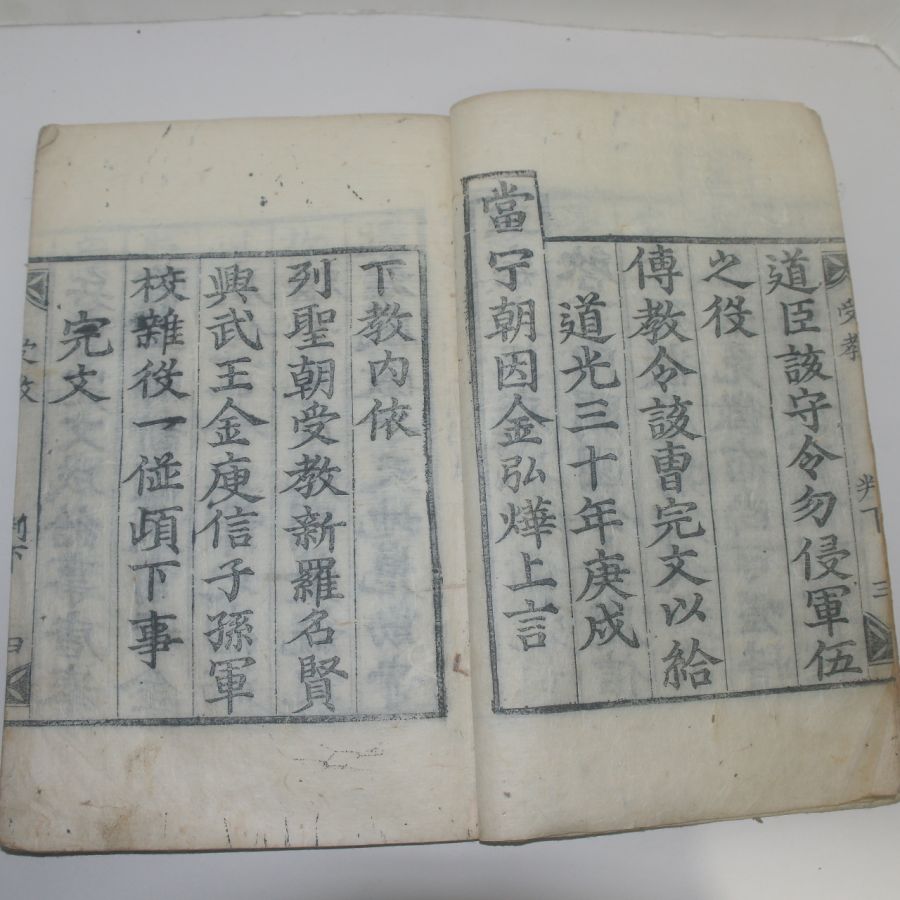 道臣該守令勿侵軍伍
之役
傳教令該曹完文以給
道光三十年庚戍
當宁朝因金弘燁上言
下教内依
列聖朝受教新羅名賢
興武王金庾信子孫軍
校雜役一從頉下事
完文
受教
判下
三
受教
判下
四